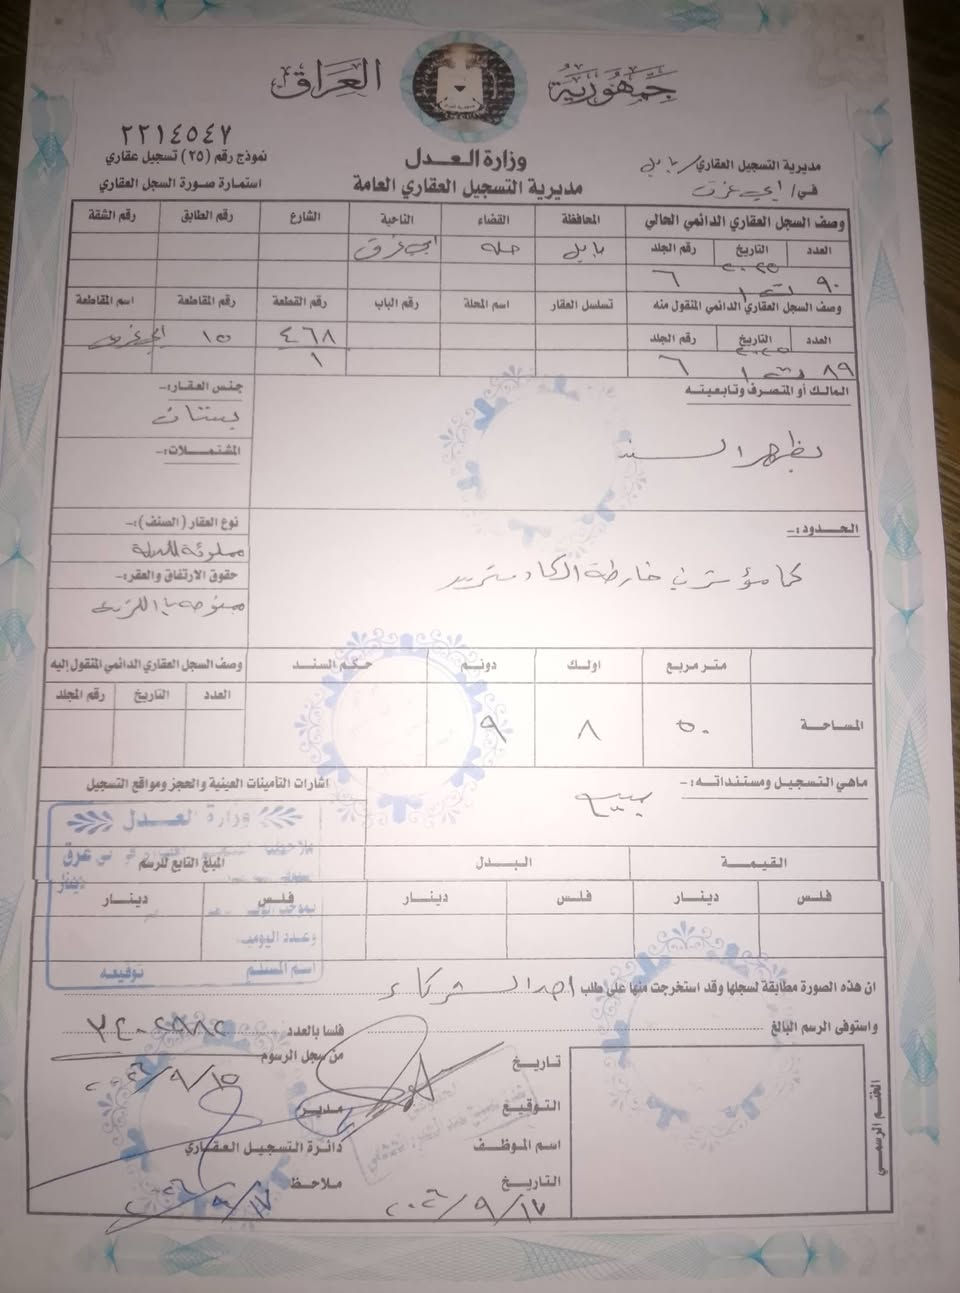 جمهورية العراق
٢٢١٤٥٤٧
وزارة العدل
نموذج رقم (٢٥) تسجيل عقاري
مديرية التسجيل العقاري / بابل
مديرية التسجيل العقاري العامة
استمارة صورة السجل العقاري
في / ابي غرق
وصف السجل العقاري الدائمي الحالي المحافظة القضاء الناحية الشارع رقم الطابق رقم الشقة
العدد التاريخ رقم الجلد بابل حله ابي غرق
٩٠ ٦
وصف السجل العقاري الدائمي المنقول منه تسلسل العقار اسم المحلة رقم الباب رقم القطعة رقم المقاطعة اسم المقاطعة
العدد التاريخ رقم الجلد ٤٦٨ ١٥ ابي غرق
٨٩ ٦ ١
المالك أو المتصرف وتابعيته جنس العقار:-
بستان
بظهر السند
المشتملات:-
الحدود:- نوع العقار (الصنف):-
مملوكة للدولة
كما مؤشر في خارطة الكادسترو
حقوق الارتفاق والعقر:-
متر مربع اولك دونم حكم السند وصف السجل العقاري الدائمي المنقول إليه
العدد التاريخ رقم المجلد
المساحة ٥٠ ٨ ٩
ماهي التسجيل ومستنداته:- اشارات التأمينات العينية والحجز ومواقع التسجيل
بيع
وزارة العدل
القيمة البدل المبلغ التابع للرسم
فلس دينار فلس دينار فلس دينار
وعدد اليومية
اسم المستلم توقيعه
ان هذه الصورة مطابقة لسجلها وقد استخرجت منها على طلب احد الشركاء
واستوفى الرسم البالغ فلسا بالعدد
من سجل الرسوم
تاريخ
التوقيع مدير
اسم الموظف دائرة التسجيل العقاري
التاريخ ملاحظ
الختم الرسمي